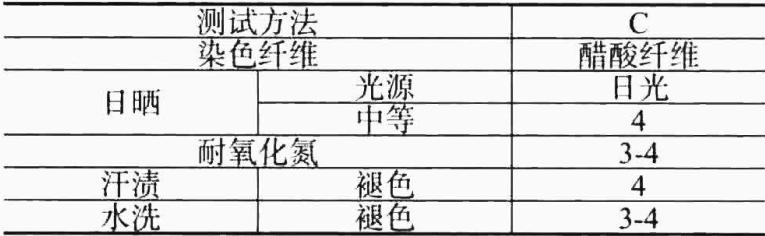 测试方法 C
染色纤维 醋酸纤维
日晒 光源 日光
中等 4
耐氧化氮 3-4
汗渍 褪色 4
水洗 褪色 3-4